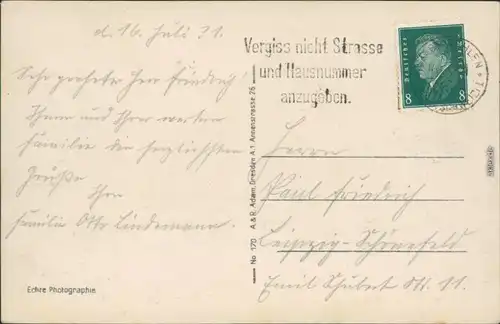 d. 16. Juli 31.
Sehr geehrter Herr Friedrich!
Ihnen und Ihrer werten
Familie die herzlichsten
Grüße
Ihre
Familie Otto Lindemann.
Echte Photographie
No 170 A & R. Adam, Dresden A. 1, Annenstrasse 26
Vergiss nicht Strasse
und Hausnummer
anzugeben.
Deutsches Reich
8 8
Herrn
Paul Friedrich
Leipzig-Schönefeld
Emil Schubert Str. 11.